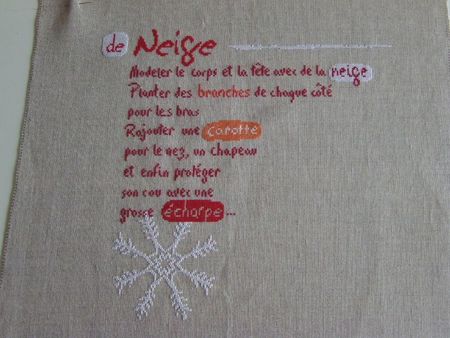 de Neige
Modeler le corps et la tête avec de la neige
Planter des branches de chaque côté
pour les bras
Rajouter une carotte
pour le nez, un chapeau
et enfin protéger
son cou avec une
grosse écharpe...